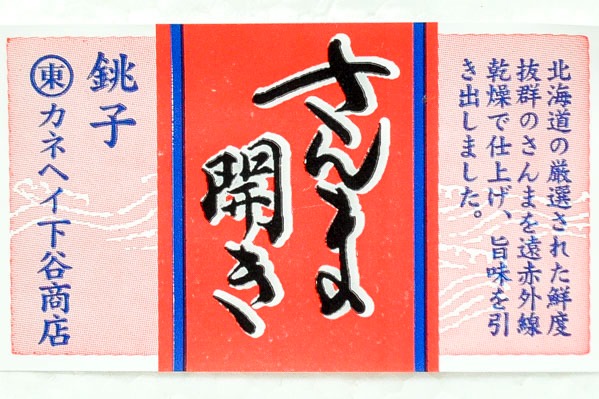 北海道の厳選された鮮度
抜群のさんまを遠赤外線
乾燥で仕上げ、旨味を引
き出しました。
さんま
開き
銚子
東 カネヘイ下谷商店